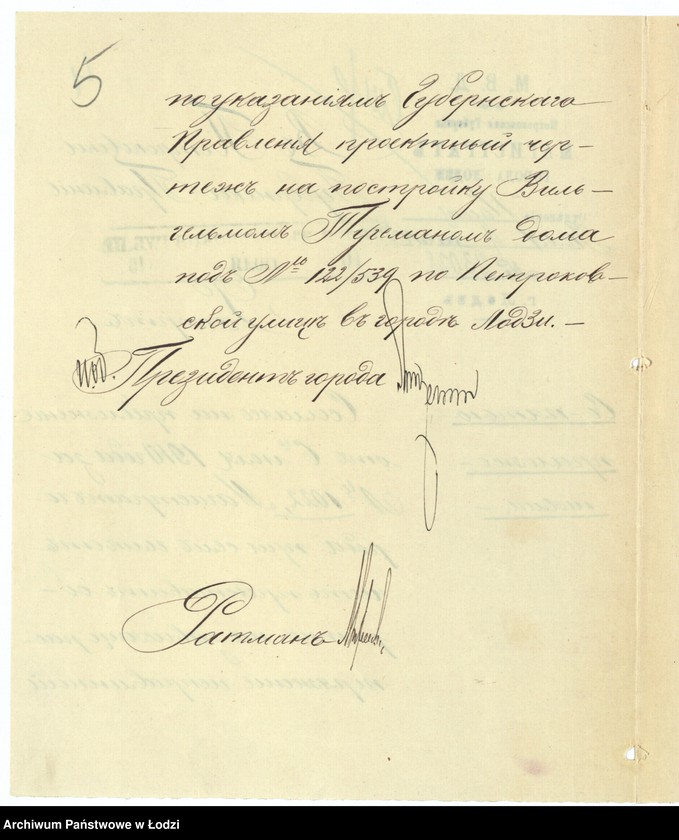 5
по указаніямъ Губернскаго
Правленія проэктный чер-
тежъ на постройку Виль-
гельмомъ Туреманомъ дома
подъ № 122/539 по Петроков-
ской улицѣ въ городѣ Лодзи.—
Президентъ города
Ратманъ
Archiwum Państwowe w Łodzi